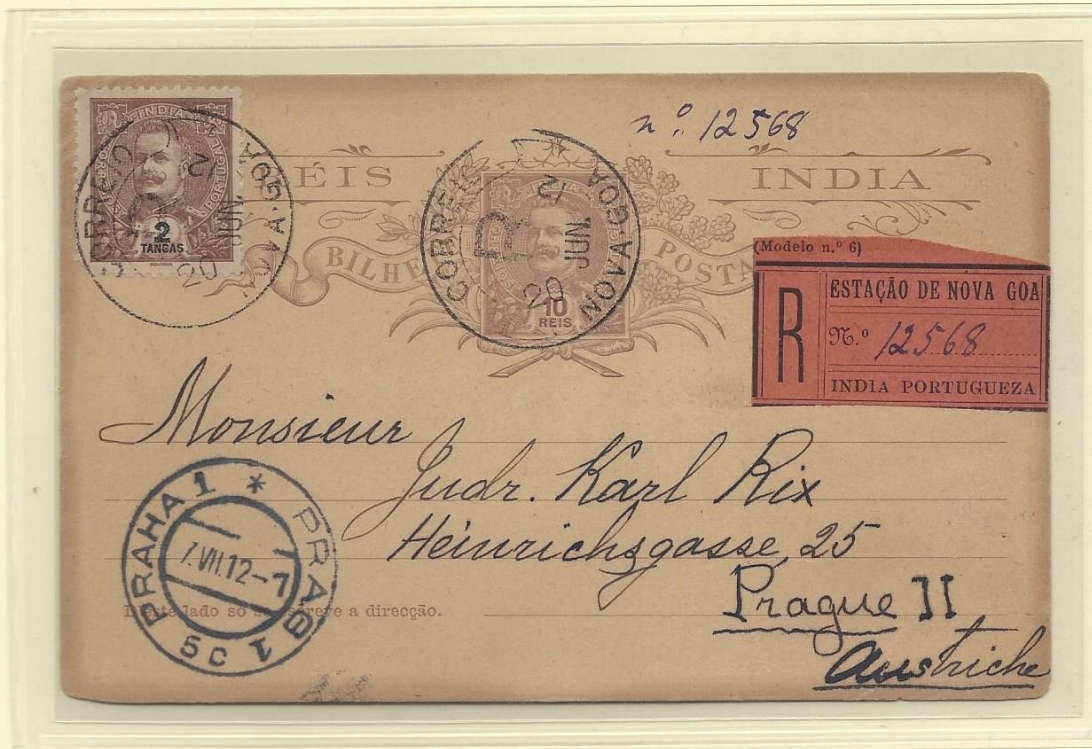 nº. 12568
INDIA
CORREIO
PORTUGAL
2
TANGAS
CORREIO
NOVA-GOA
20
JUN.
12
RÉIS
INDIA
BILHE
POSTA
10
REIS
CORREIO
NOVA-GOA
R
20
JUN.
12
(Modelo n.º 6)
R
ESTAÇÃO DE NOVA GOA
N.º 12568
INDIA PORTUGUEZA
Monsieur
Judr. Karl Rix
Heinrichsgasse, 25
Prague II
Austriche
PRAHA 1 * PRAG 1
7.VII.12-7
5C
D'este lado só se escreve a direcção.